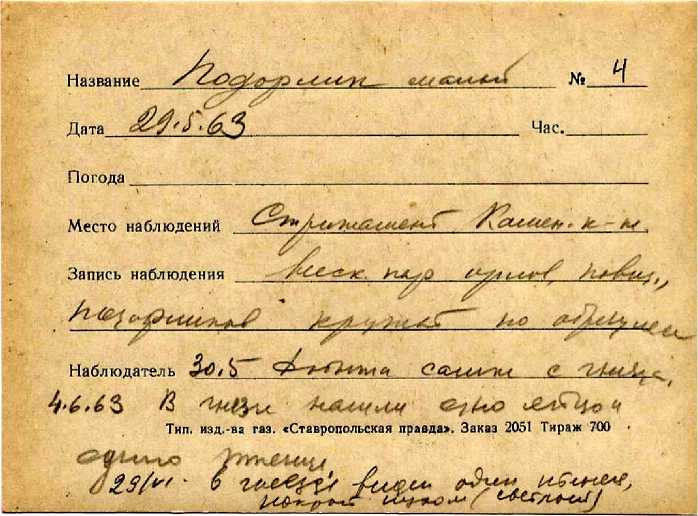 Название Подорлик малый № 4
Дата 29.5.63 Час.
Погода
Место наблюдений Стрижамент Камен. к-н.
Запись наблюдения неск. пар орлов,
кружат по
Наблюдатель 30.5 Добыта самка с гнезда.
4.6.63 В гнезде нашли одно яйцо и
Тип. изд-ва газ. «Ставропольская правда». Заказ 2051 Тираж 700
одного птенца.
29/VI. в гнезде виден один птенец,
покрыт пухом (светлым)